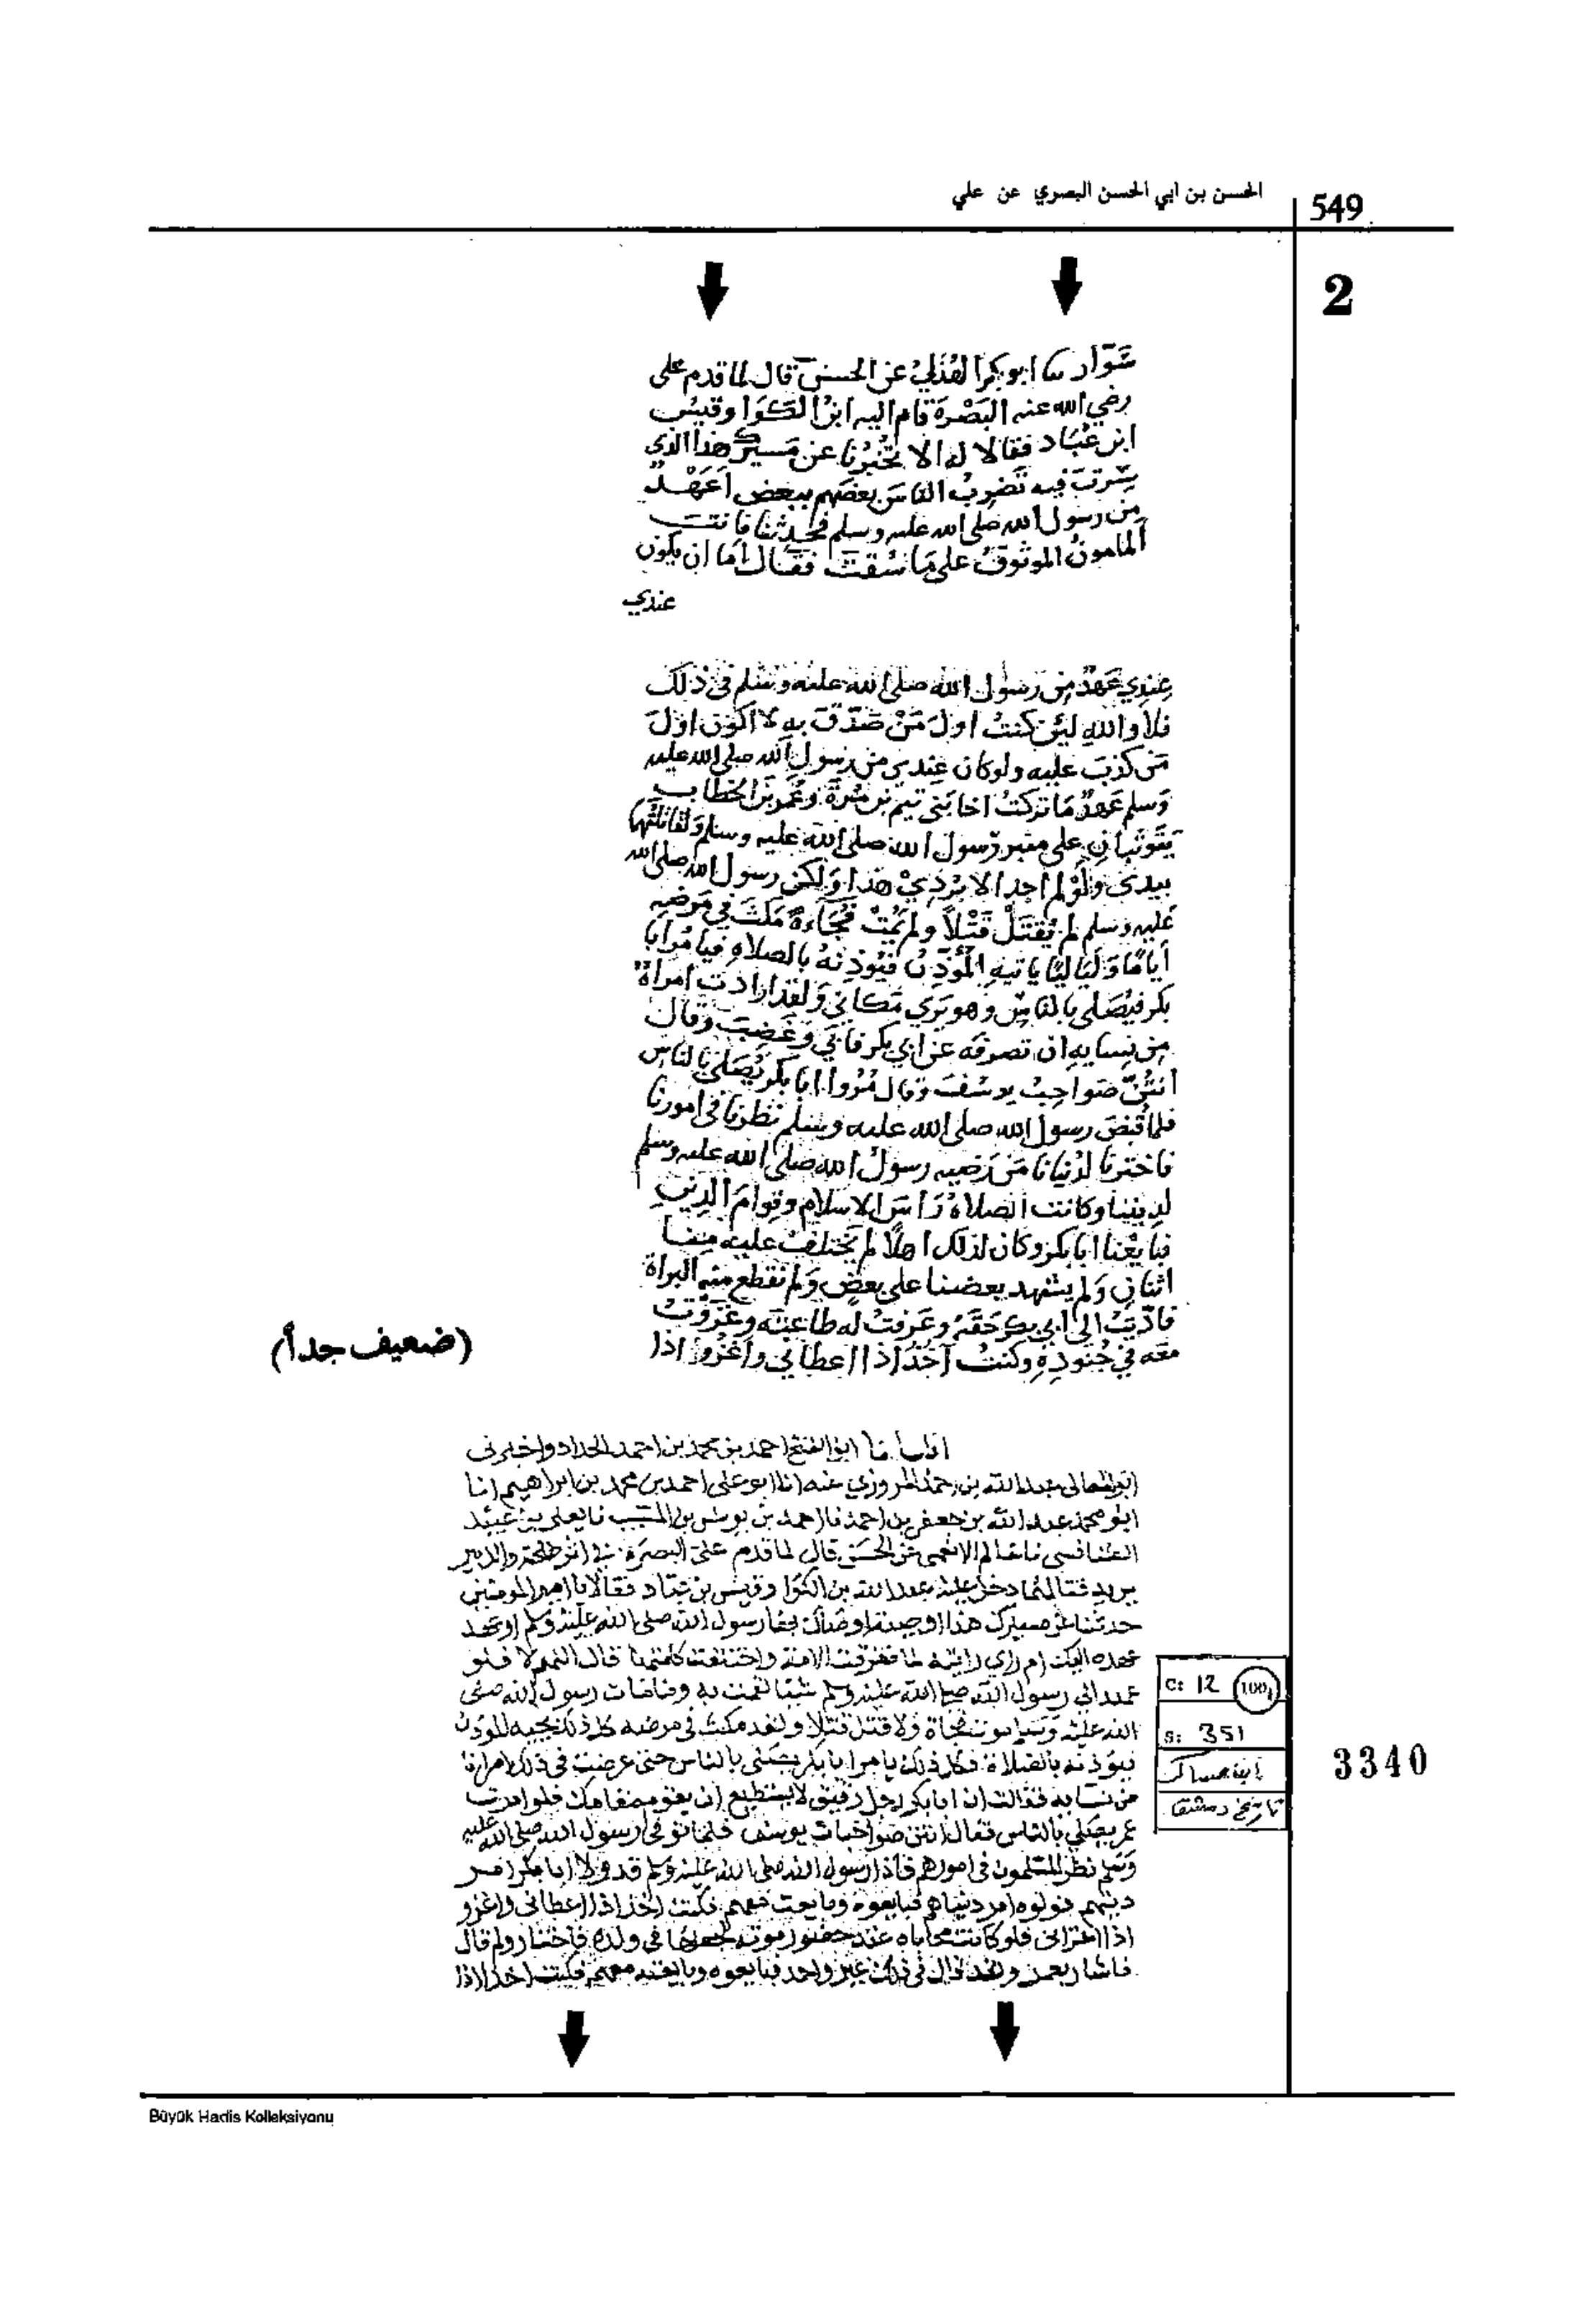 الحسن بن ابي الحسن البصري عن علي
549
2
شوّار ثنا ابو بكر الهُذَليُ عن الحسن قال لما قدم علي
رضي الله عنه البَصْرَة قام اليه ابنُ الكَوَا وقيسُ
ابن عُبَاد فقالا له الا تُخْبِرُنا عن مَسيرِكَ هذا الذي
سِرتَ فيه تَضرِبُ الناسَ بعضَهم ببعض اَعَهْدٌ
من رسول الله صلى الله عليه وسلم فحدِثنا فانتَ
المامونُ الموثوقُ على ما سمعتَ فقال اما ان يكون
عندي
عِندي عَهدٌ مِن رسول الله صلى الله عليه وسلم في ذلك
فلا والله لئن كنتُ اول مَنْ صَدّقَ به لا اكون اولَ
مَن كذبَ عليه ولو كان عِندي من رسول الله صلى الله عليه
وَسلم عَهدٌ ما تركتُ اخا بَني تيم بن مُرة وعُمر بن الخطاب
على منبر رسول الله صلى الله عليه وسلم ولقاتلتُهما
بيدي ولَوْ لم اجد الا بُردي هذا وَلكن رسول الله صلى الله
عليه وسلم لم يُقتَلْ قَتْلاً ولم يَمُتْ فُجَاءةً مَكثَ في مَرضِهِ
أيامًا وَلياليًا ياتيهِ المُؤَذِنُ فيُوذِنهُ بالصلاه فيامُر ابا
بكر فيُصَلي بالناسِ وهو يَرَي مَكاني وَلقد ارادت امراةٌ
مِن نِسايهِ ان تصرفَه عن ابي بكر فابي وَغَضِبَ وَقال
انتُنّ صَواحِبُ يوسُفَ وقال مُرُوا ابا بكر يُصَلي بالناسِ
فلما قُبضَ رسول الله صلى الله عليه وسلم نَظرنا في امورنا
فاخترنا لدُنيانا مَن رَضيه رسولُ الله صلى الله عليه وسلم
لديننا وكانت الصلاةُ رَأسَ الاسلامِ وقوامَ الدينِ
فبايَعْنا ابا بكر وكان لذلك اهلًا لم يَختلِف عليه منا
اثنانِ وَلم يشهد بعضنا على بعضٍ ولم نقطع منه البراة
فادّيتُ الى ابي بكر حَقّهُ وعَرفتُ له طاعتَه وغزوتُ
معَه في جُنودِهِ وكنتُ آخُذ اذا اعطاني واَغزُو اذا
(ضعيف جداً)
ابو الفتح احمد بن محمد بن احمد الحداد واخبرني
ابو المعالي عبد الله بن احمد المروزي عنه انا ابو علي احمد بن محمد بن ابراهيم انا
ابو محمد عبد الله بن جعفر بن احمد نا احمد بن يونس بن المسيب نا يعلى بن عبيد
الطنافسي عن الحسن قال لما قدم علي البصرة في اثر طلحة والزبير
يريد قتالهما دخل عليه عبد الله بن الكوا وقيس بن عباد فقالا يا امير المومنين
حدثنا عن مسيرك هذا اوصية اوصاك بها رسول الله صلى الله عليه وسلم او عهد
عهده اليك ام راي رايته لما تفرقت الامة واختلفت كلمتها قال اللهم لا فلو
عهد الي رسول الله صلى الله عليه وسلم شيئا لقمت به وما مات رسول الله صلى
الله عليه وسلم موت فجاة ولا قتل قتلا ولقد مكث في مرضه كل ذلك يجيبه المؤذن
فيؤذنه بالصلاة فكل ذلك يامر ابا بكر يصلي بالناس حتى عرضت في ذلك امراة
من نسايه فقالت ان ابا بكر رجل رقيق لا يستطيع ان يقوم مقامك فلو امرت
عمر يصلي بالناس فقال انتن صواحبات يوسف فلما توفي رسول الله صلى الله عليه
وسلم نظر المسلمون في امورهم فاذا رسول الله صلى الله عليه وسلم قد ولا ابا بكر امر
دينهم فولوه امر دنياهم فبايعوه وبايعت معهم فكنت اخذ اذا اعطاني واغزو
اذا اغزاني فلو كانت محاباه عند حضور موته لجعلها في ولده فاختار ولم قال
فاشار بعمر فبايعوه وبايعته معهم فكنت اخذ اذا
C: 12
100
S: 351
ابن عساكر
تاريخ دمشق
3340
Büyük Hadis Kolleksiyonu